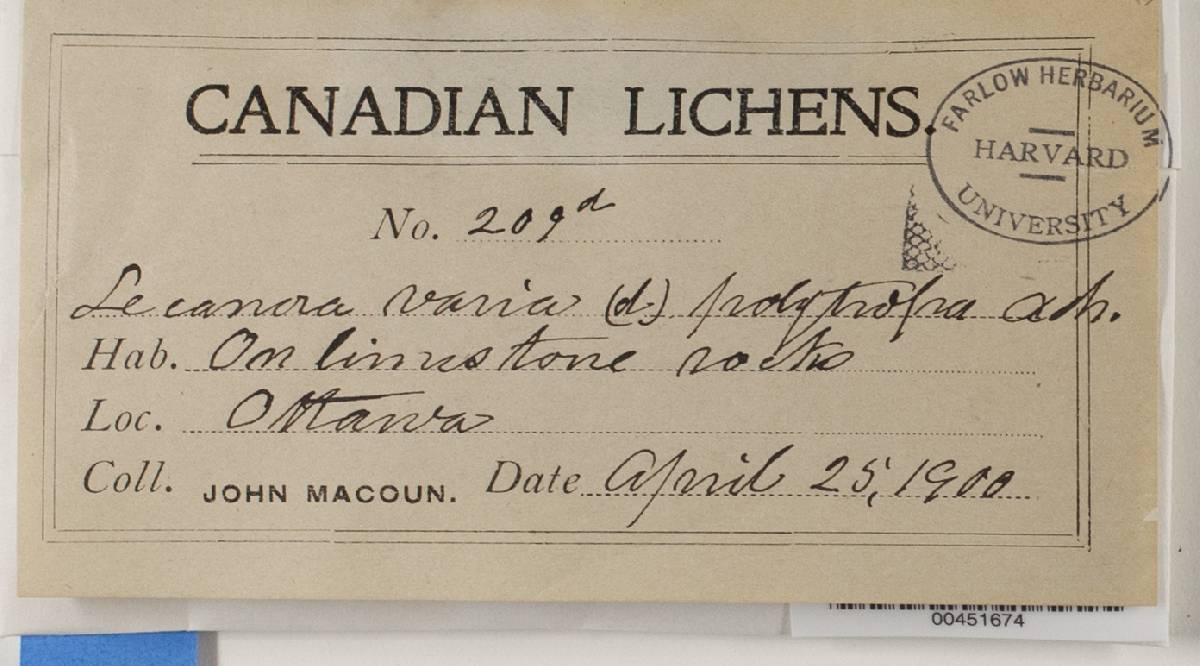 CANADIAN LICHENS.
FARLOW HERBARIUM
HARVARD
UNIVERSITY
No. 209d
Lecanora varia (d.) polytropa ach.
Hab. On limestone rocks
Loc. Ottawa
Coll. JOHN MACOUN. Date April 25, 1900
00451674